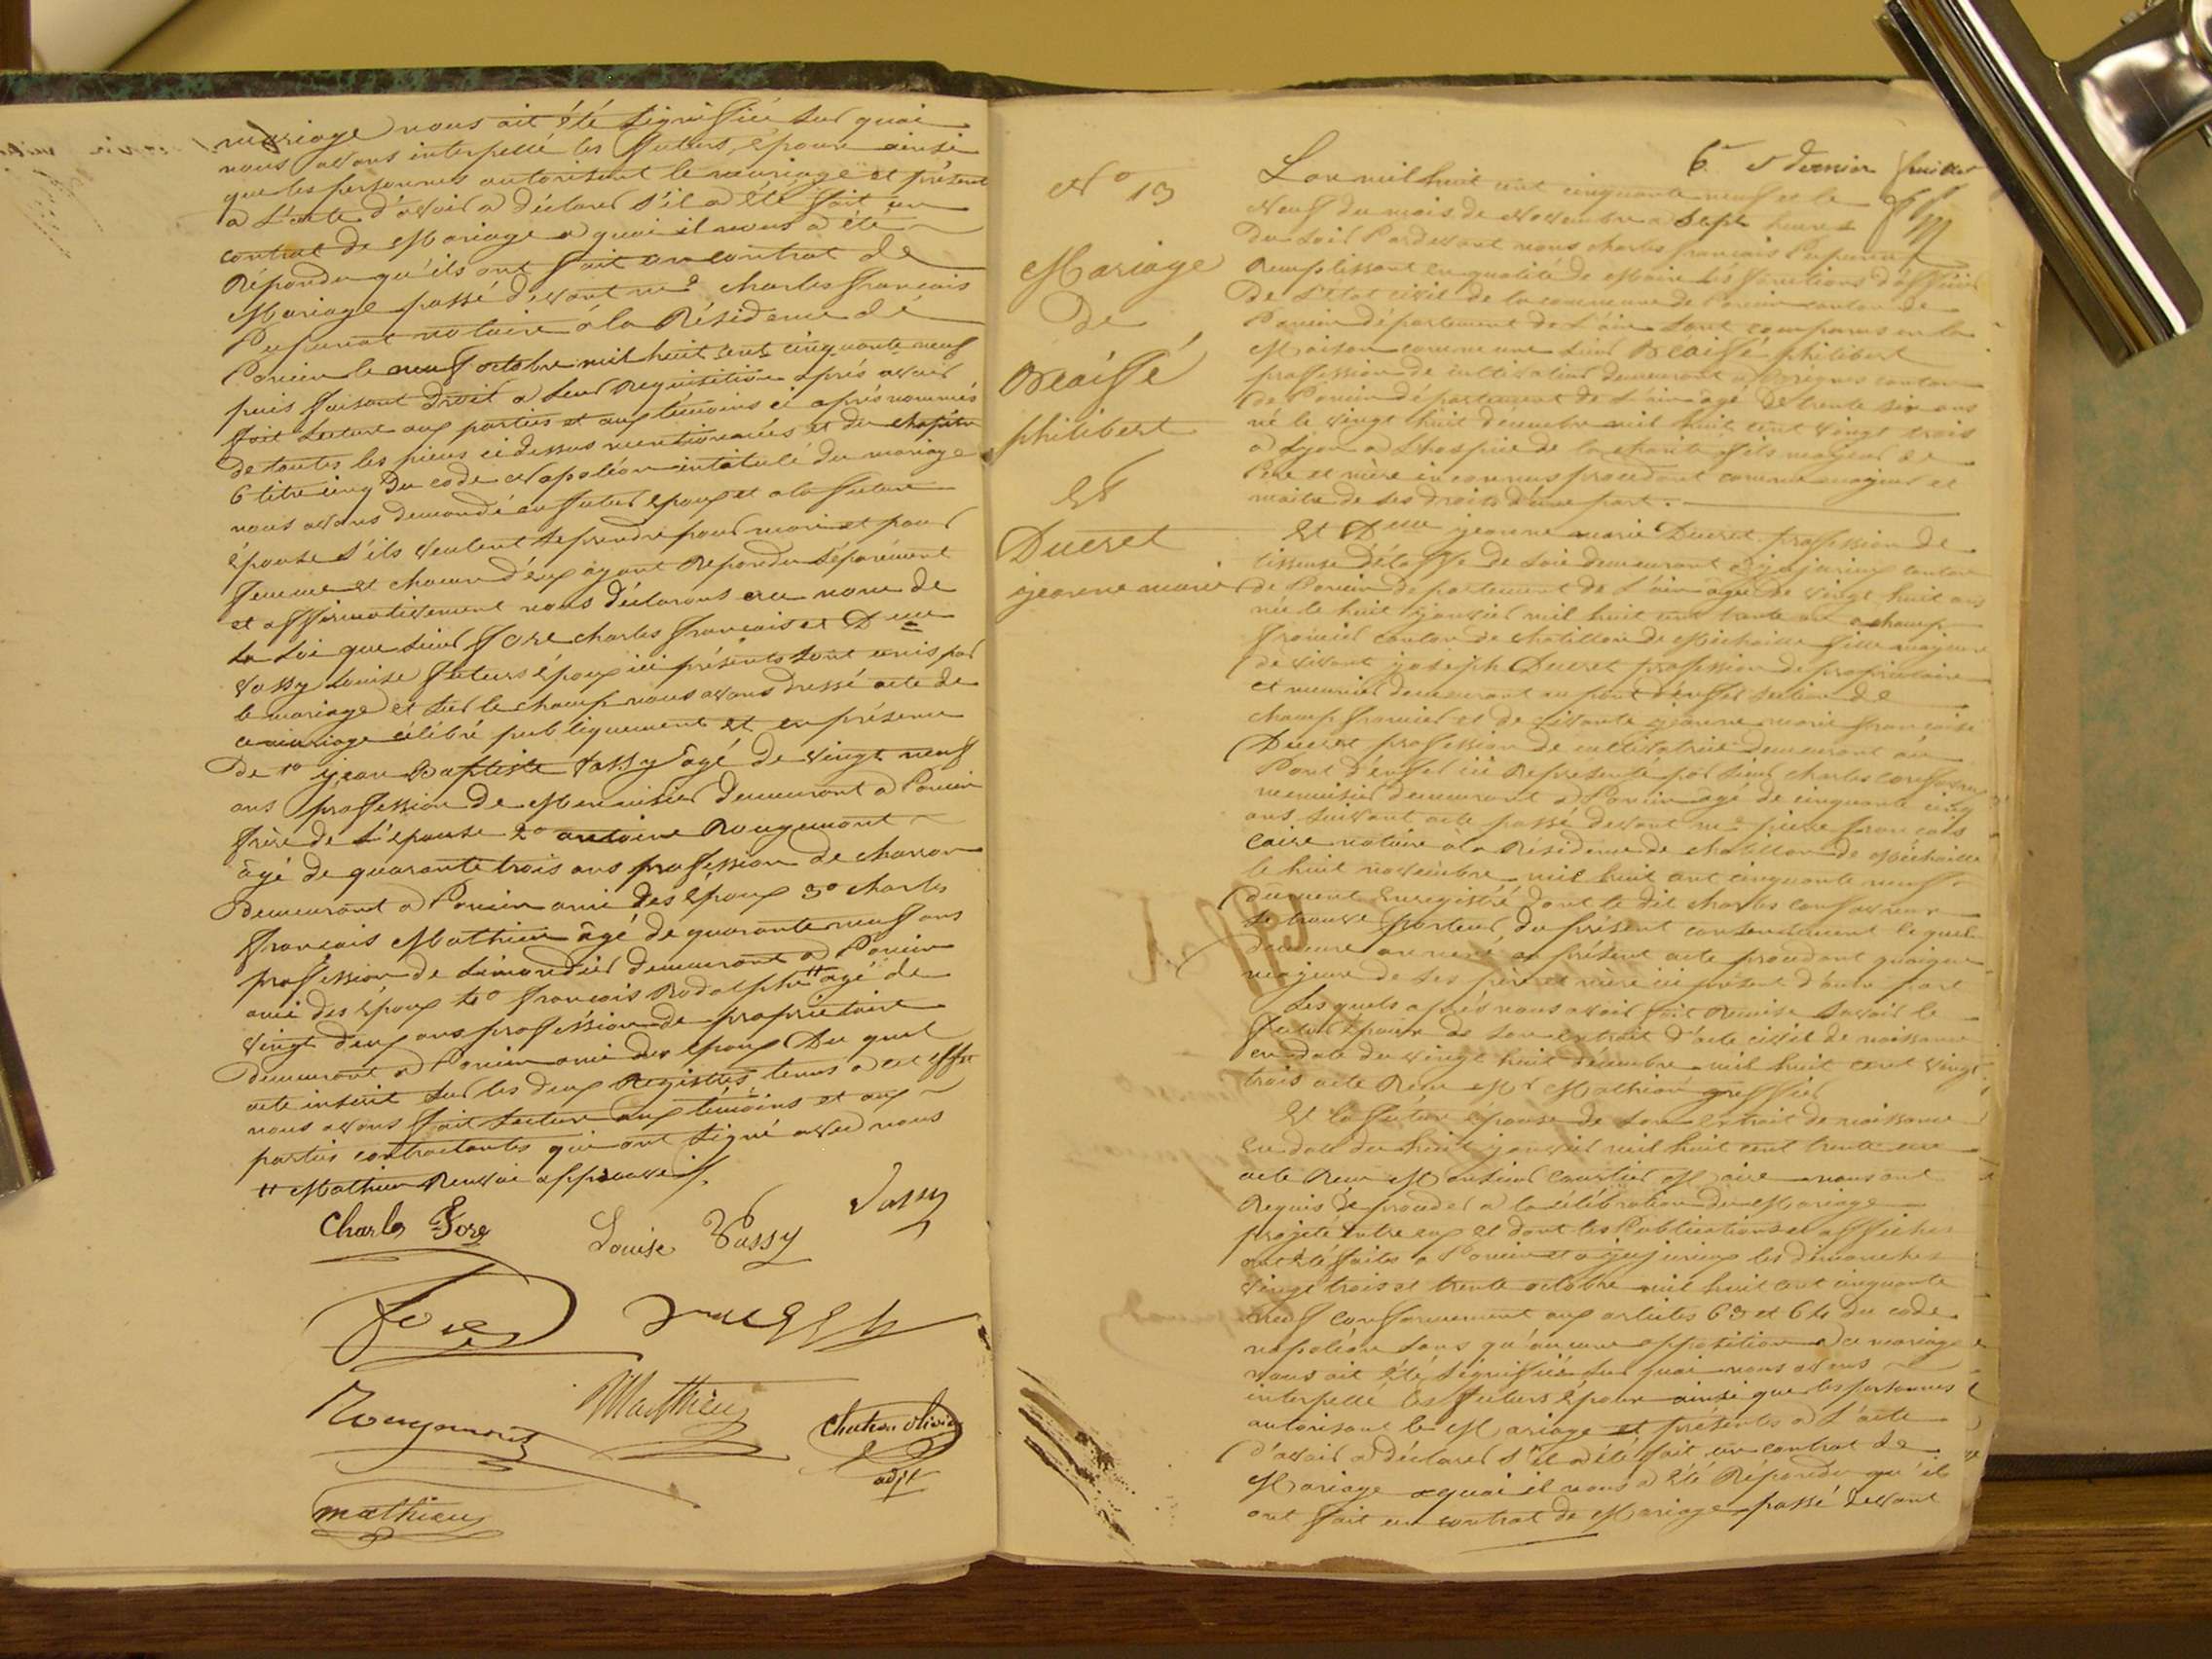 mariage nous ait été signifiée sur quoi
nous avons interpellé les futurs époux ainsi
que les personnes autorisant le mariage et présent
a L'acte d'avoir a déclarer s'il a été fait un
contrat de Mariage a quoi il nous a été
Répondu qu'ils ont fait un contrat de
Mariage passé devant me charles francois
notaire á la Résidence de
Poncin le neuf octobre mil huit cent cinquante neuf
puis faisant droit a leur Requisition aprés avoir
fait Lecture aux parties et aux témoins ci aprés nommés
de toutes les pieces ci dessus mentionnées et du chapitre
6 titre cinq du code Napoléon intitulé du mariage
nous avons demandé au futur epoux et a la future
épouse s'ils veulent se prendre pour mari et pour
femme et chacun d'eux ayant Repondu séparément
et affirmativement nous déclarons au nom de
la Loi que sieur fore charles francois et Delle
Vassy Louise futurs époux ici présents sont unis par
le mariage et sur le champ nous avons dressé acte de
ce mariage célébré publiquement et en présence
De 1o jean Baptiste Vassy âgé de vingt neuf
ans profession de Menuisier demeurant a Poncin
frère de L'epouse 2o antoine Rougemont
âgé de quarante trois ans profession de charron
demeurant a Poncin ami des époux 3o charles
françois Mathieu âgé de quarante neuf ans
profession de Limonadier demeurant a Poncin
ami des époux 4o françois Rodolphe # agé de
vingt deux ans profession de propriétaire
demeurant a Poncin ami des époux Du quel
acte inscrit sur les deux Registres tenus a cet effet
nous avons fait Lecture aux témoins et aux
parties contractantes qui ont signé avec nous
# Mathieu Renvoi approuvé
Charles Fore Louise Vassy Vassy
Fore
Rougemont Matthieu Chatron olivier
adjt
mathieu
6e et dernier feuillet
No 13
Mariage
De
Bréaissé
philibert
Et
Ducret
jeanne marie
L'an mil huit cent cinquante neuf et le
Neuf du mois de Novembre a sept heures
Du soir Pardevant nous charles francois
Remplissant en qualité de Maire les fonctions d'officier
De L'Etat civil de la commune de Poncin canton de
Poncin département de L'ain sont comparus en la
Maison commune sieur philibert
profession de cultivateur demeurant a canton
de Poncin département de L'ain agé de trente six ans
né le vingt huit décembre mil huit cent vingt trois
a Lyon a L'hospice de la charité fils majeur de
Père et mère inconnus procedant comme majeur et
maitre de ses droits d'une part.
Et Delle jeanne marie Ducret profession de
tisseuse d'étoffe de soie demeurant a jujurieux canton
de Poncin departement de L'ain âgée de vingt huit ans
née le huit janvier mil huit cent trente un a champ
fromier canton de chatillon de Michaille fille majeure
de vivant joseph Ducret profession de propriétaire
et meunier demeurant au pont d'enfer section de
champfromier et de vivante jeanne marie francoise
Ducret profession de cultivatrice demeurant au
Pont d'enfer ici Représenté par sieur charles
menuisier demeurant a Poncin agé de cinquante cinq
ans suivant acte passé devant me pierre francois
Caire notaire à la Résidence de chatillon de Michaille
le huit novembre mil huit cent cinquante neuf
dument Enregistré dont le dit charles
se trouve porteur du présent consentement lequel
demeure annexé au présent acte procedant quoique
majeure de ses père et mère ici présent d'autre part
Lesquels aprés nous avoir fait Remise savoir le
futur époux de son extrait d'acte civil de naissance
en date du vingt huit décembre mil huit cent vingt
trois acte Reçu Mr Mathian greffier
Et la future épouse de son extrait de naissance
En date du huit janvier mil huit cent trente un
acte Reçu Monsieur Coustier Maire nous ont
Requis de proceder a la célébration du Mariage
projeté entre eux et dont les Publications et affiches
ont été faites a Poncin et a jujurieux les dimanches
vingt trois et trente octobre mil huit cent cinquante
neuf conformement aux articles 63 et 64 du code
napoléon sans qu'aucune opposition a ce mariage
nous ait été signifiée sur quoi nous avons
interpellé les futurs époux ainsi que les personnes
autorisant le Mariage et présentes a L'acte
d'avoir a déclarer s'il a été fait un contrat de
Mariage a quoi il nous a été Répondu qu'ils
ont fait un contrat de Mariage passé devant